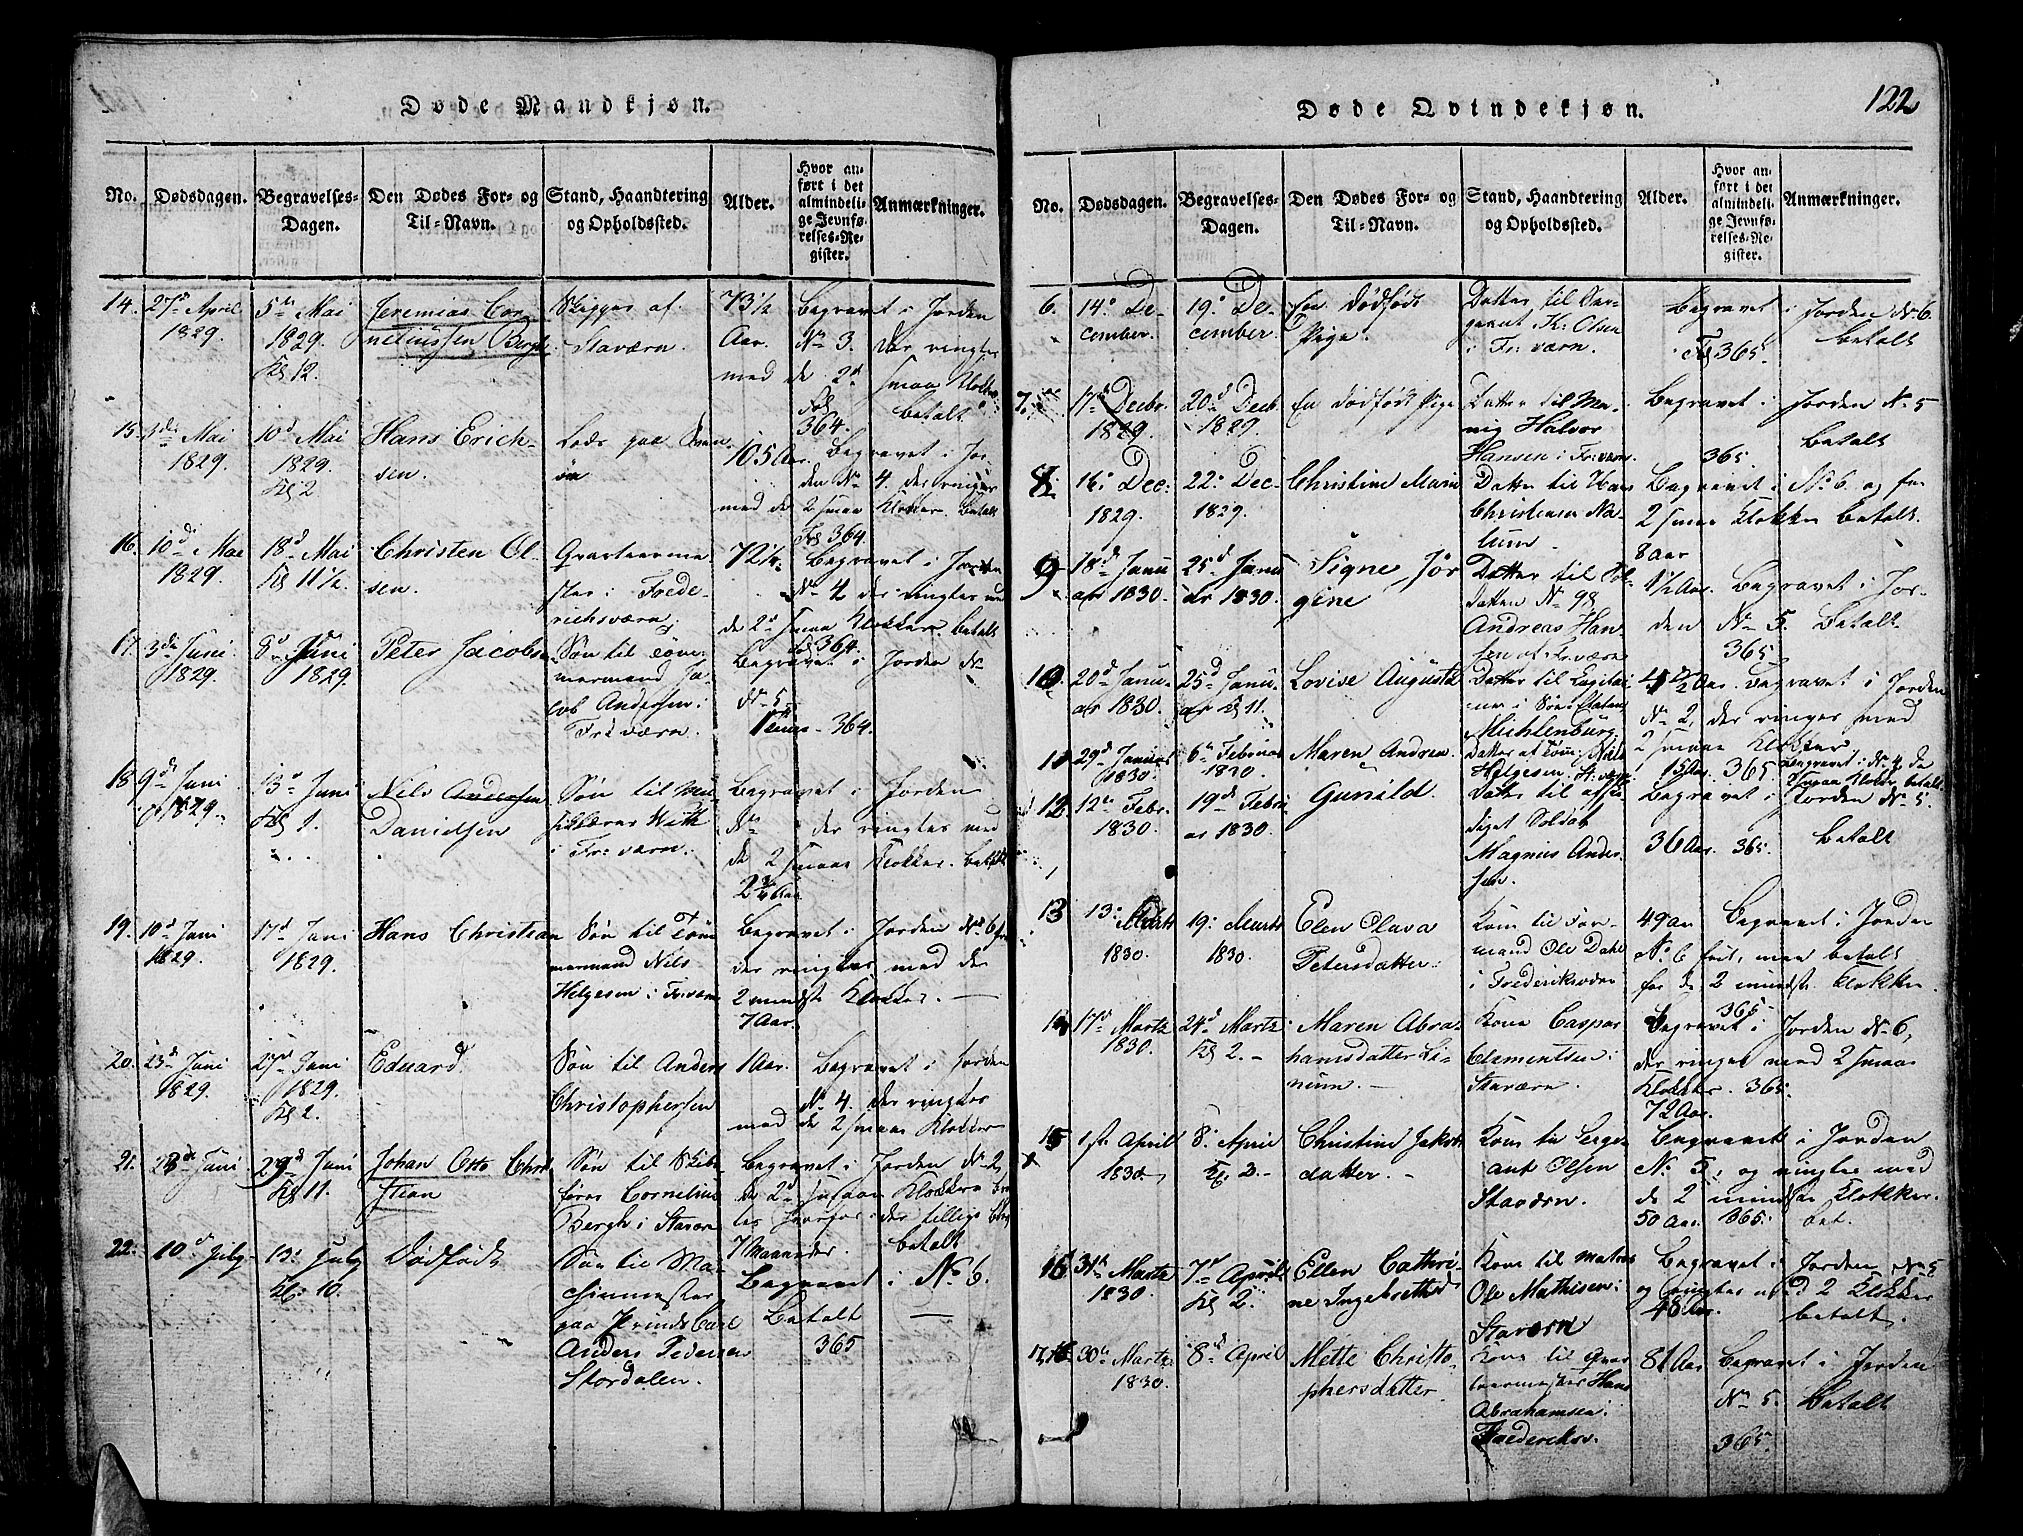 Døde Mandkjøn.
No. Dødsdagen. Begravelses-Dagen. Den Dødes For- og Til-Navn. Stand, Haandtering og Opholdssted. Alder. Hvor anført i det almindelige Jevnførelses-Register. Anmærkninger.
14. 27d April 1829. 5te Mai 1829. Kl 12. Jeremias Corneliussen Bergh Skipper af Staværn. 73½ Aar. Begravet i Jorden No 3. Der ringtes med de 2d smaa Klokker. betalt
Fol 364.
15. 3de Mai 1829. 10d Mai 1829. Kl 2 Hans Erichsen. Lods paa 105 Aar. Begravet i Jorden No 4. der ringes med de 2 smaa Klokker. Betalt
Fol 364.
16. 10de Mai 1829. 18d Mai Kl 11½. Christen Olsen. Qvarteermester i Frederichsværn. 72¼. Begravet i Jorden No 4 der ringtes med de 2d smaa Klokker. betalt
Fol 364.
17. 3de Juni 1829. 8d Juni 1829. Peter Jacobsen Søn til Tømmermand Jacob Andersen i Fr: værn. Begravet i Jorden No 5. 364.
18. 9de Juni 1829. 13d Juni Kl 1. Nils Andersen Danielsen Søn til With i Fr: værn. Begravet i Jorden No der ringtes med de 2 smaa Klokker. betalt
2¾ Aar
19. 10d Juni 1829. 17d Juni 1829. Hans Christian Søn til Tømmermand Nils Helgesen i Fr: værn Begravet i Jorden No 6 der ringtes med de 2 mindste Klokker.
7 Aar.
20. 23d Juni 1829. 27d Juni 1829. Kl 2. Eduard. Søn til Anders Christophersen 1 Aar. Begravet i Jorden No 4. der ringtes med de 2 smaa Klokker
21. 23d Juni 29d Juni Kl 11. Johan Otto Christian Søn til Skibsfører Cornelius Bergh i Staværn Begravet i Jorden No 2, de 2d smaa Klokkers
7 Maaneder. betalt
22. 10d July 13: July Kl: 10. Dødfødt Søn til Maskinmester paa Prinds Carl Anders Pedersen Stordalen. Begravet i No 6.
Betalt
365
122
Døde Qvindekjøn.
No. Dødsdagen. Begravelses-Dagen. Den Dødes For- og Til-Navn. Stand, Haandtering og Opholdssted. Alder. Hvor anført i det almindelige Jevnførelses-Register. Anmærkninger.
6. 14d December. 19d December. En dødfødt Pige. Datter til Sergeant K: Olsen i Fr: værn. Begravet i Jorden No 6.
Fol 365 betalt
7. 17d Decbr. 1829. 20d Decb. 1829. En dødfødt Pige Datter til Halvor Hansen i Fr: værn. Begravet i Jorden No 5
365. betalt
8. 16: Dec: 1829. 22: Dec: 1829. Christine Marie Datter til Hans Christensen Nalum. Begravet i No 6. og for 2 smaa Klokker betalt.
8 Aar
9. 18d Januar 1830. 25d Januar 1830. Signe Jørgine Datter til Soldaten No 98 Andreas Hansen af Fr: værn 1½ Aar. Begravet i Jorden No 5. Betalt
365.
10 20d Januar 1830. 25d Januar Kl 11. Lovise Augusta Datter til Capitain i Søe Etaten Michlenburg. Aar. Begravet i Jorden No 2, der ringes med 2 smaa Klokker
11 29d Januar 1830. 6te Februar 1830. Maren Andrea Datter af Tøm: Nils Helgesen Fr: værn 15 Aar. 365. Begravet i No 4 de 2 smaa Klokker betalt.
12. 12te Febr. 1830. 19de Februar 1830. Gunild. Datter til afskediget Soldat Magnus Andersen. Begravet i Jorden No 5.
36 Aar. 365. betalt
13 13: Marts 1830. 19: Marts 1830. Elen Olava Petersdatter. Kone til Formand Ole Dahl i Frederiksværn 49 Aar Begravet i Jorden No 6 frit, men betalt for de 2 mindste Klokker.
365
14 17d Marts 1830. 24d Marts Kl 2. Maren Abrahamsdatter Linnum. Kone Caspar Clementsen Staværn. Begravet i Jorden No 6, der ringes med 2 smaa Klokker. 365.
72 Aar.
15 1ste April 1830. 8: April Kl: 3. Christine Jakobsdatter. Kone til Sergeant Olsen Staværn. Begravet i Jorden No 5, og ringtes med de 2 mindste Klokker.
50 Aar. 365. bet.
16 31te Marts 1830. 7d April Kl 2. Ellen Cathrine Ingebretsd Kone til Matros Ole Mathisen: Staværn Begravet i Jorden No 5 og ringtes med 2 Klokker
48 Aar. betalt.
17. 30te Marts 1830. 8de April Mette Christophersdatter. Kone til Qvarteermester Hans Abrahamsen: Frederiksv. 81 Aar Begravet i Jorden No 5. Betalt
365.